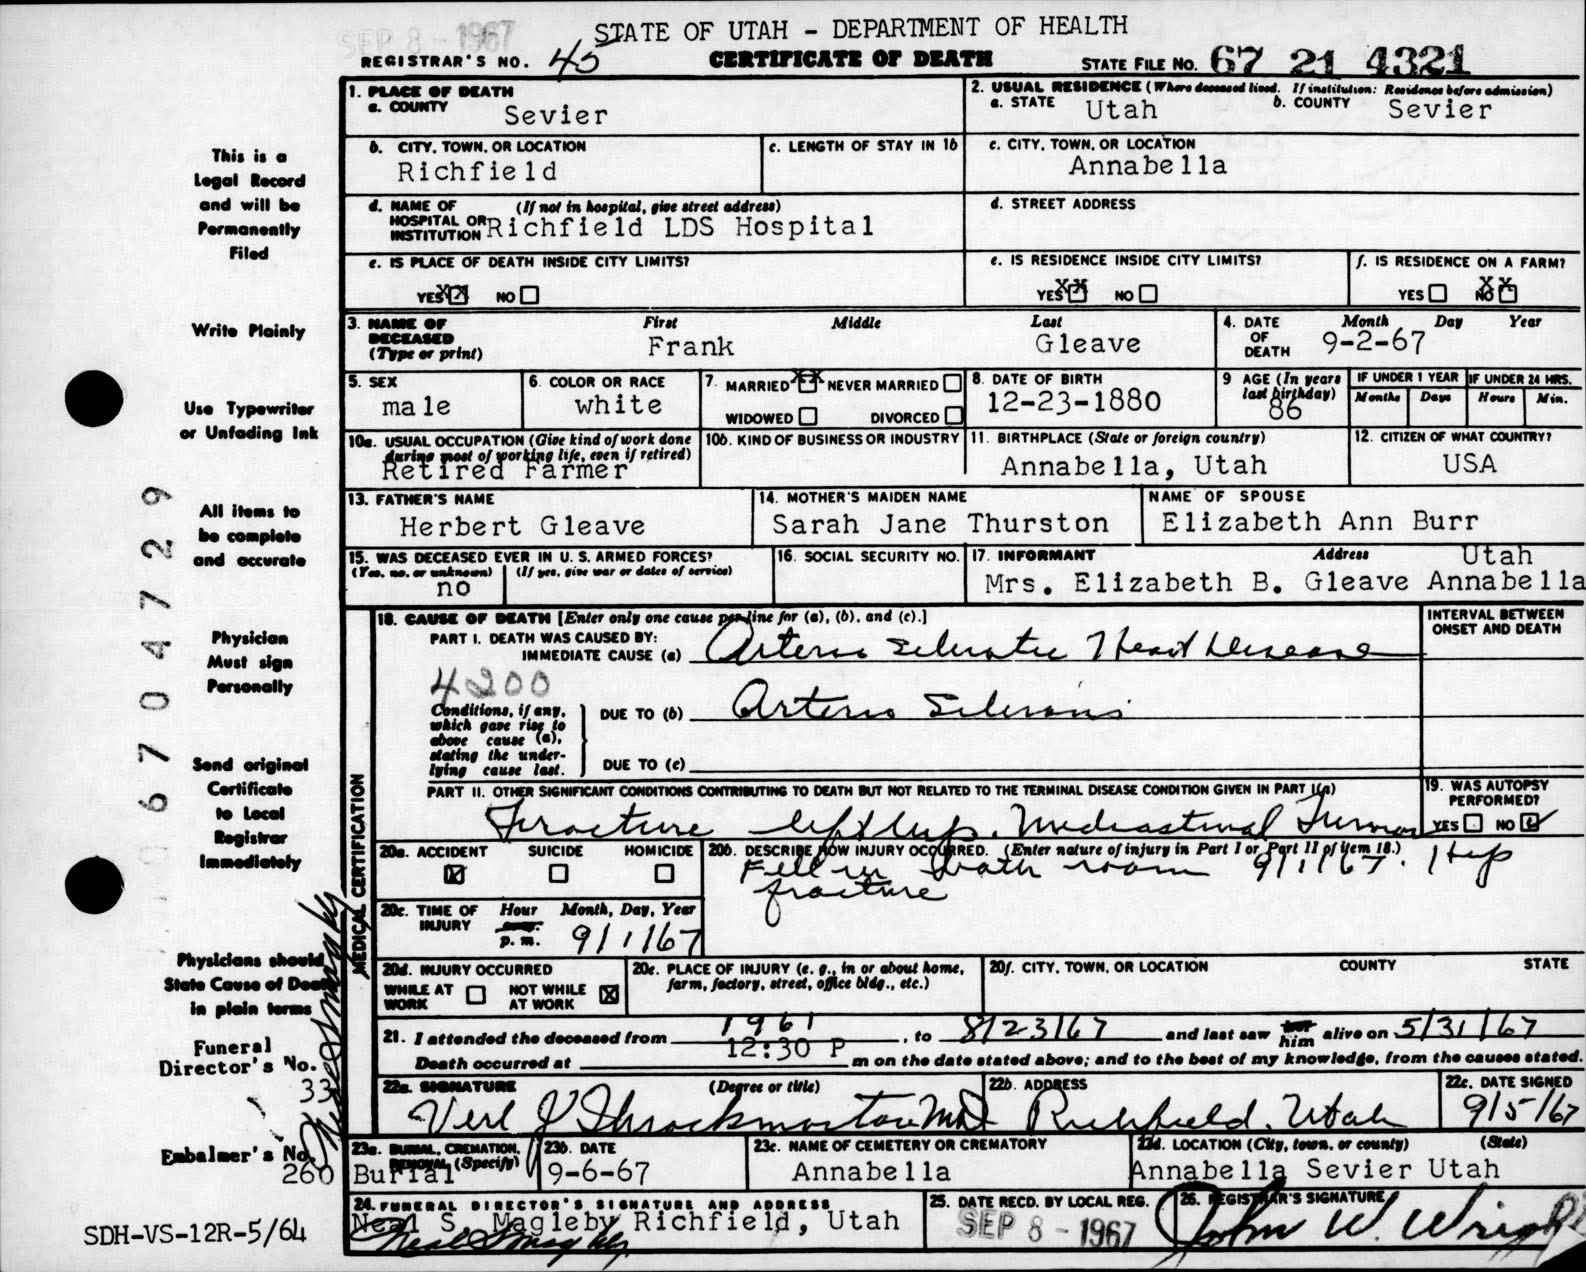 SEP 8 - 1967
STATE OF UTAH - DEPARTMENT OF HEALTH
REGISTRAR'S NO. 45
CERTIFICATE OF DEATH
STATE FILE NO. 67 21 4321
1. PLACE OF DEATH
a. COUNTY Sevier
2. USUAL RESIDENCE (Where deceased lived. If institution: Residence before admission)
a. STATE Utah b. COUNTY Sevier
b. CITY, TOWN, OR LOCATION
Richfield
c. LENGTH OF STAY IN 1b
c. CITY, TOWN, OR LOCATION
Annabella
d. NAME OF HOSPITAL OR INSTITUTION (If not in hospital, give street address)
Richfield LDS Hospital
d. STREET ADDRESS
e. IS PLACE OF DEATH INSIDE CITY LIMITS?
YES XX NO
e. IS RESIDENCE INSIDE CITY LIMITS?
YES XX NO
f. IS RESIDENCE ON A FARM?
YES NO XX
3. NAME OF DECEASED (Type or print)
First Middle Last
Frank Gleave
4. DATE OF DEATH Month Day Year
9-2-67
5. SEX
male
6. COLOR OR RACE
white
7. MARRIED XX NEVER MARRIED
WIDOWED DIVORCED
8. DATE OF BIRTH
12-23-1880
9 AGE (In years last birthday)
86
IF UNDER 1 YEAR IF UNDER 24 HRS.
Months Days Hours Min.
10a. USUAL OCCUPATION (Give kind of work done during most of working life, even if retired)
Retired Farmer
10b. KIND OF BUSINESS OR INDUSTRY
11. BIRTHPLACE (State or foreign country)
Annabella, Utah
12. CITIZEN OF WHAT COUNTRY?
USA
13. FATHER'S NAME
Herbert Gleave
14. MOTHER'S MAIDEN NAME
Sarah Jane Thurston
NAME OF SPOUSE
Elizabeth Ann Burr
15. WAS DECEASED EVER IN U. S. ARMED FORCES?
(Yes, no, or unknown) (If yes, give war or dates of service)
no
16. SOCIAL SECURITY NO.
17. INFORMANT Address Utah
Mrs. Elizabeth B. Gleave Annabella
MEDICAL CERTIFICATION
18. CAUSE OF DEATH [Enter only one cause per line for (a), (b), and (c).]
INTERVAL BETWEEN ONSET AND DEATH
PART I. DEATH WAS CAUSED BY:
IMMEDIATE CAUSE (a) Arterio Sclerotic Heart Disease
4200
Conditions, if any, which gave rise to above cause (a), stating the underlying cause last.
DUE TO (b) Arterio Sclerosis
DUE TO (c)
PART II. OTHER SIGNIFICANT CONDITIONS CONTRIBUTING TO DEATH BUT NOT RELATED TO THE TERMINAL DISEASE CONDITION GIVEN IN PART I(a)
Fracture left hip. Mediastinal Tumor
19. WAS AUTOPSY PERFORMED?
YES NO
20a. ACCIDENT SUICIDE HOMICIDE
X
20b. DESCRIBE HOW INJURY OCCURRED. (Enter nature of injury in Part I or Part II of item 18.)
Fell in bath room 9/1/67. Hip
fracture
20c. TIME OF INJURY Hour Month, Day, Year
a.m.
p.m. 9/1/67
20d. INJURY OCCURRED
WHILE AT WORK NOT WHILE AT WORK X
20e. PLACE OF INJURY (e. g., in or about home, farm, factory, street, office bldg., etc.)
20f. CITY, TOWN, OR LOCATION COUNTY STATE
21. I attended the deceased from 1961, to 8/23/67 and last saw her him alive on 5/31/67
Death occurred at 12:30 P m on the date stated above; and to the best of my knowledge, from the causes stated.
22a. SIGNATURE (Degree or title)
Verl J Throckmorton MD
22b. ADDRESS
Richfield, Utah
22c. DATE SIGNED
9/5/67
23a. BURIAL, CREMATION, REMOVAL (Specify)
Burial
23b. DATE
9-6-67
23c. NAME OF CEMETERY OR CREMATORY
Annabella
23d. LOCATION (City, town, or county) (State)
Annabella Sevier Utah
24. FUNERAL DIRECTOR'S SIGNATURE AND ADDRESS
Neal S. Magleby Richfield, Utah
Neal S Magleby
25. DATE RECD. BY LOCAL REG.
SEP 8 - 1967
26. REGISTRAR'S SIGNATURE
John W. Wright
This is a
Legal Record
and will be
Permanently
Filed
Write Plainly
Use Typewriter
or Unfading Ink
All items to
be complete
and accurate
Physician
Must sign
Personally
Send original
Certificate
to Local
Registrar
Immediately
Physicians should
State Cause of Death
in plain terms
Funeral
Director's No.
33
Neal S Magleby
Embalmer's No.
260
SDH-VS-12R-5/64
06704729